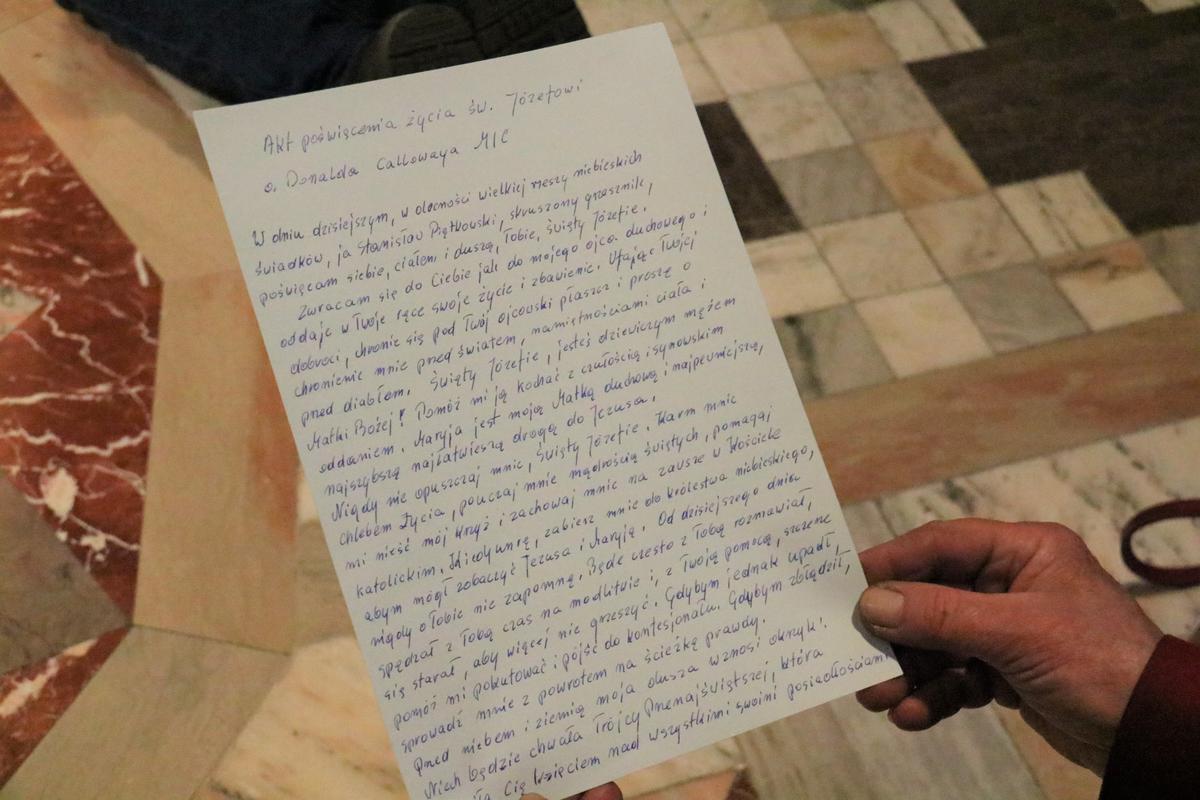 Akt poświęcenia życia św. Józefowi
o. Donalda Callowaya MIC
W dniu dzisiejszym, w obecności wielkiej rzeszy niebieskich
świadków, ja Stanisław Piętkowski, skruszony grzesznik,
poświęcam siebie, ciałem i duszą, Tobie, Święty Józefie.
Zwracam się do Ciebie jak do mojego ojca duchowego i
oddaję w Twoje ręce swoje życie i zbawienie. Ufając Twojej
dobroci, chronię się pod Twój ojcowski płaszcz i proszę o
chronienie mnie przed światem, namiętnościami ciała i
przed diabłem. Święty Józefie, jesteś dziewiczym mężem
Matki Bożej! Pomóż mi ją kochać z czułością i synowskim
oddaniem. Maryja jest moją Matką duchową i najpewniejszą,
najszybszą najłatwieszą drogą do Jezusa.
Nigdy nie opuszczaj mnie, Święty Józefie. Karm mnie
chlebem życia, pouczaj mnie mądrością świętych, pomagaj
mi nieść mój krzyż i zachowaj mnie na zawsze w Kościele
katolickim. Kiedy umrę, zabierz mnie do królestwa niebieskiego,
abym mógł zobaczyć Jezusa i Maryję. Od dzisiejszego dnia
nigdy o Tobie nie zapomnę. Będę często z Tobą rozmawiał,
spędzał z Tobą czas na modlitwie i, z Twoją pomocą, szczerze
się starał, aby więcej nie grzeszyć. Gdybym jednak upadł,
pomóż mi pokutować i pójść do konfesjonału. Gdybym zbłądził,
sprowadź mnie z powrotem na ścieżkę prawdy.
Przed niebem i ziemią moja dusza wznosi okrzyk:
Niech będzie chwała Trójcy Przenajświętszej, która
Cię księciem nad wszystkimi swoimi posiadłościami